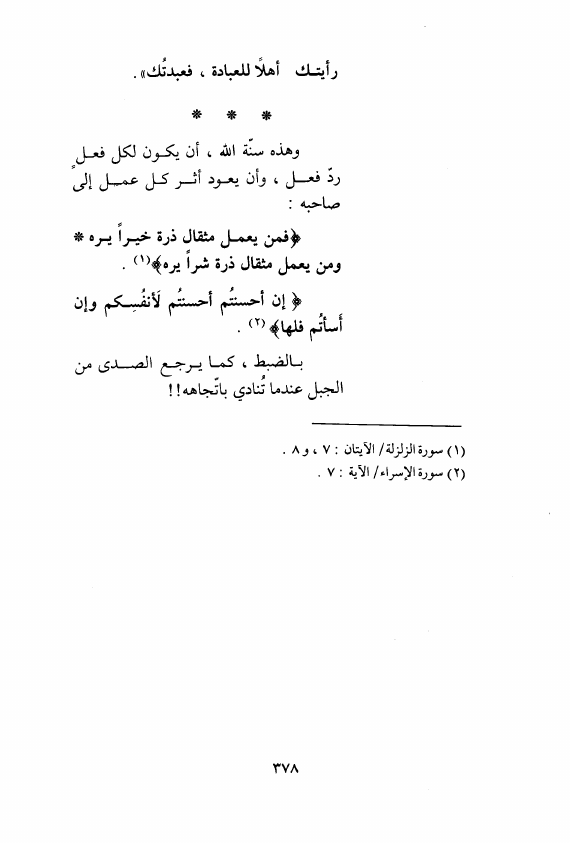 رأيتـك أهلًا للعبادة ، فعبدتُك» .
* * *
وهذه سنّة الله ، أن يكـون لكل فعـلٍ
ردّ فعـل ، وأن يعـود أثـر كـل عمـل إلى
صاحبه :
﴿فمن يعمـل مثقال ذرة خيـراً يـره *
ومن يعمل مثقال ذرة شراً يره﴾(١) .
﴿ إن أحسنتُم أحسنتُم لَأنفُسِـكم وإن
أسأتُم فلها﴾(٢) .
بـالضبط ، كمـا يـرجـع الصـدى من
الجبل عندما تُنادي باتّجاهه!!
(١) سورة الزلزلة/ الآيتان : ٧ ، و٨ .
(٢) سورة الإسراء/ الآية : ٧ .
٣٧٨